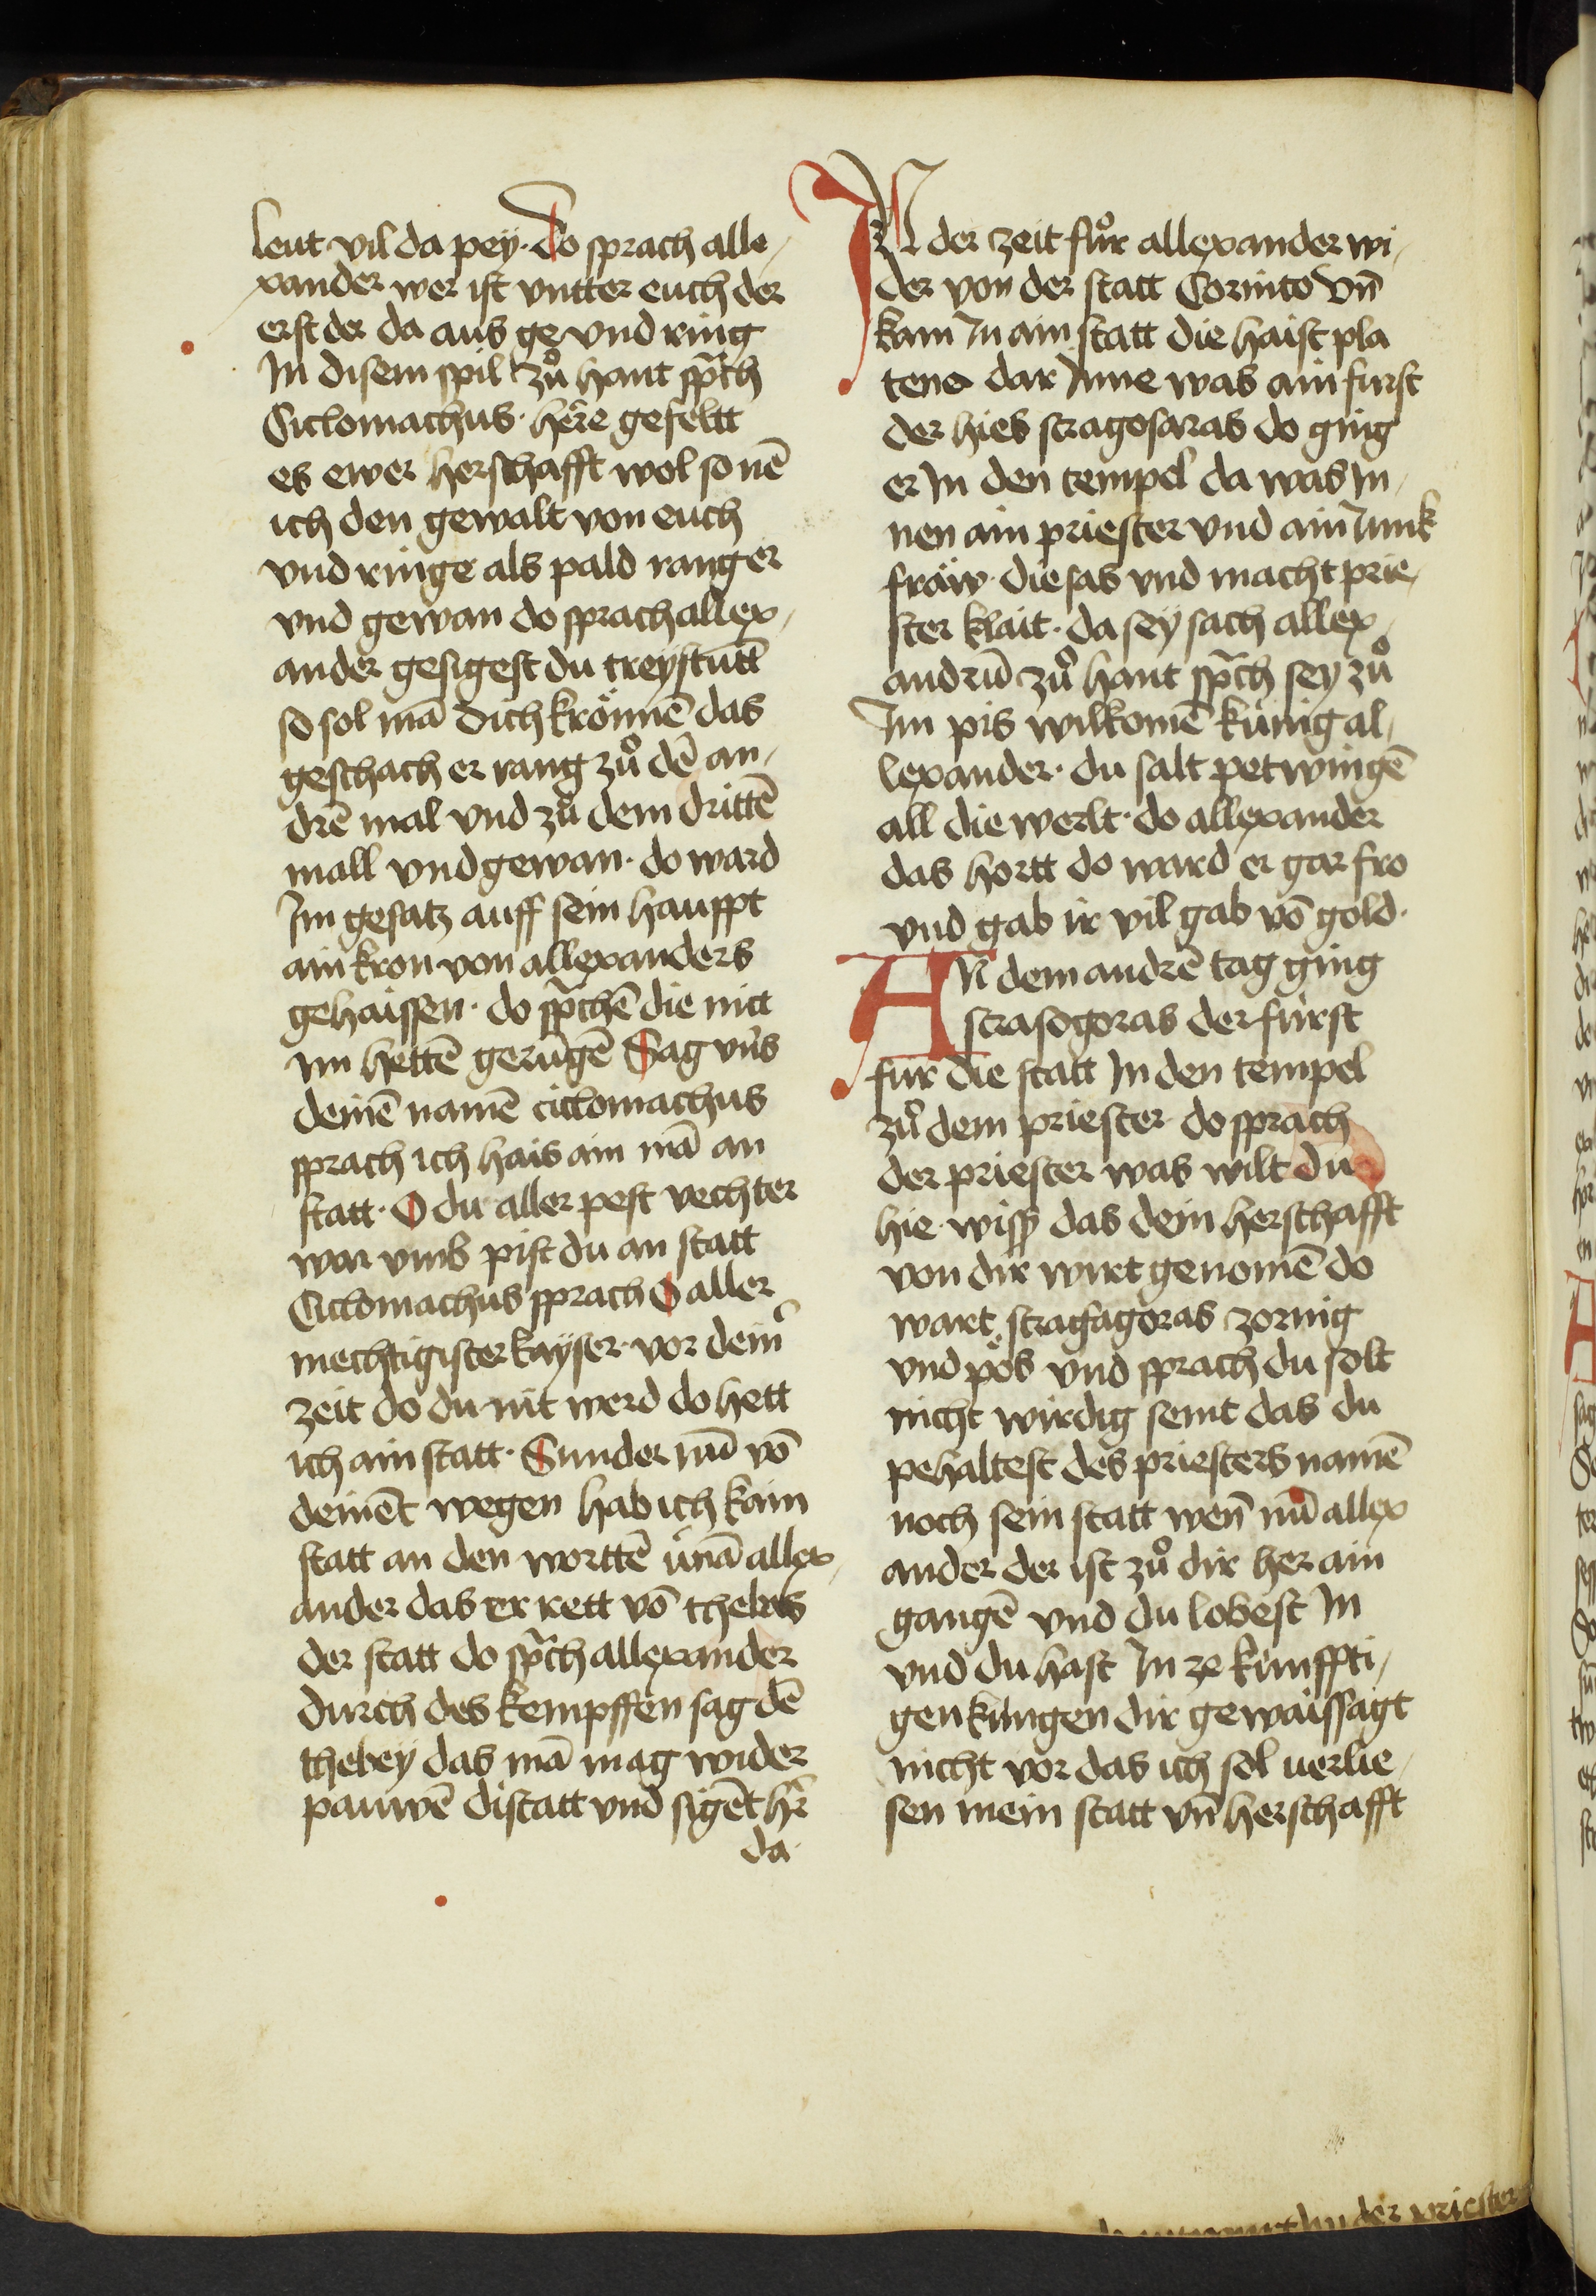 leut vil da peÿ · do sprach alle⸗
xander wer ist vntter euch der
erst der da aus ge vnd ring
In disem spil zuͦ hant sp̄ch
Ciclomachus · here gefeltt
es ewer herschafft wol so nē
ich den gewalt von euch
vnd ringe als pald ranger
vnd gewan do sprach allex⸗
ander gesigest du treÿstunt
so sol mā dich krönnē das
geschach er rang zuͦ dē an⸗
drē mal vnd zuͦ dem drittē
mall vnd gewan · do ward
Im gesatz auff sein hauppt
ain kron von allexanders
gehaissen · do sp̄chē die mit
im hettē gerūgē Sag vns
deinē namē ciclomachus
sprach ich hais ain mā an
statt · O du aller pest vechter
war vmb pist du an statt
Ciclomachus sprach O aller
mechtigister kayser · vor dein̄
zeit do du nit werd do hett
ich ain statt · Sunder nū vō
deinēt wegen hab ich kain
statt an den worttē v̈nā allex⸗
ander das er rett vō thebas
der statt do sp̄ch allexander
durch des kempffen sag dē
thebeÿ das mā mag wider
pauwē di statt vnd sigēt hr̄
da ·
IN der zeit fuͦr allexander wi⸗
der von der statt Corinto vn̄
kam In ain statt die haist pla
tene dar Inne was ain furst
der hies stragosaras do ging
er In den tempel da was In⸗
nen ain priester vnd ain Junk
fräw · die sas vnd macht prie⸗
ster klait · da seÿ sach allex⸗
andrū zuͦ hant sp̄ch seÿ zuͦ
Im pis wilkomē künig al⸗
lexander · du salt petwingē
all die werlt · do allexander
das hortt do ward er gar fro
vnd gab ir vil gab vō gold ·
AN dem andrē tag ging
strasogoras der fürst
für die statt In den tempel
zuͦ dem priester do sprach
der priester was wilt du
hie · wiss das dein herschafft
von dir wirt genomē do
wart stragagoras zornig
vnd pös vnd sprach du solt
nicht wirdig seint das du
pehaltest des priesters namē
noch sein statt wen̄ nū allex
ander der ist zuͦ dir her ain
gangē vnd du lobest In
vnd du hast In ze künffti⸗
gen kungen dir gewaissagt
nicht vor das ich sol verlie⸗
sen mein statt vn̄ herschafft
der priester